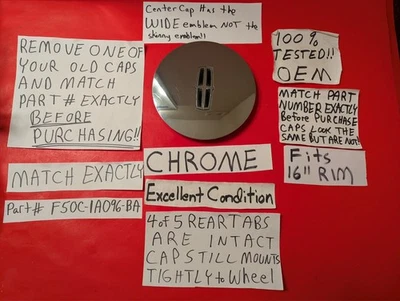 Center Cap Has the
WIDE emblem NOT the
skinny emblem!!
REMOVE ONE OF
YOUR OLD CAPS
AND MATCH
PART # EXACTLY
BEFORE
PURCHASING!!
100%
TESTED!!
OEM
MATCH PART
NUMBER EXACTLY
Before PURCHASE
CAPS LOOK THE
SAME BUT ARE NOT!!
Fits
16" RIM
CHROME
MATCH EXACTLY
Excellent Condition
Part# F50C-1A096-BA
4 of 5 REAR TABS
ARE INTACT
CAP STILL MOUNTS
TIGHTLY to Wheel